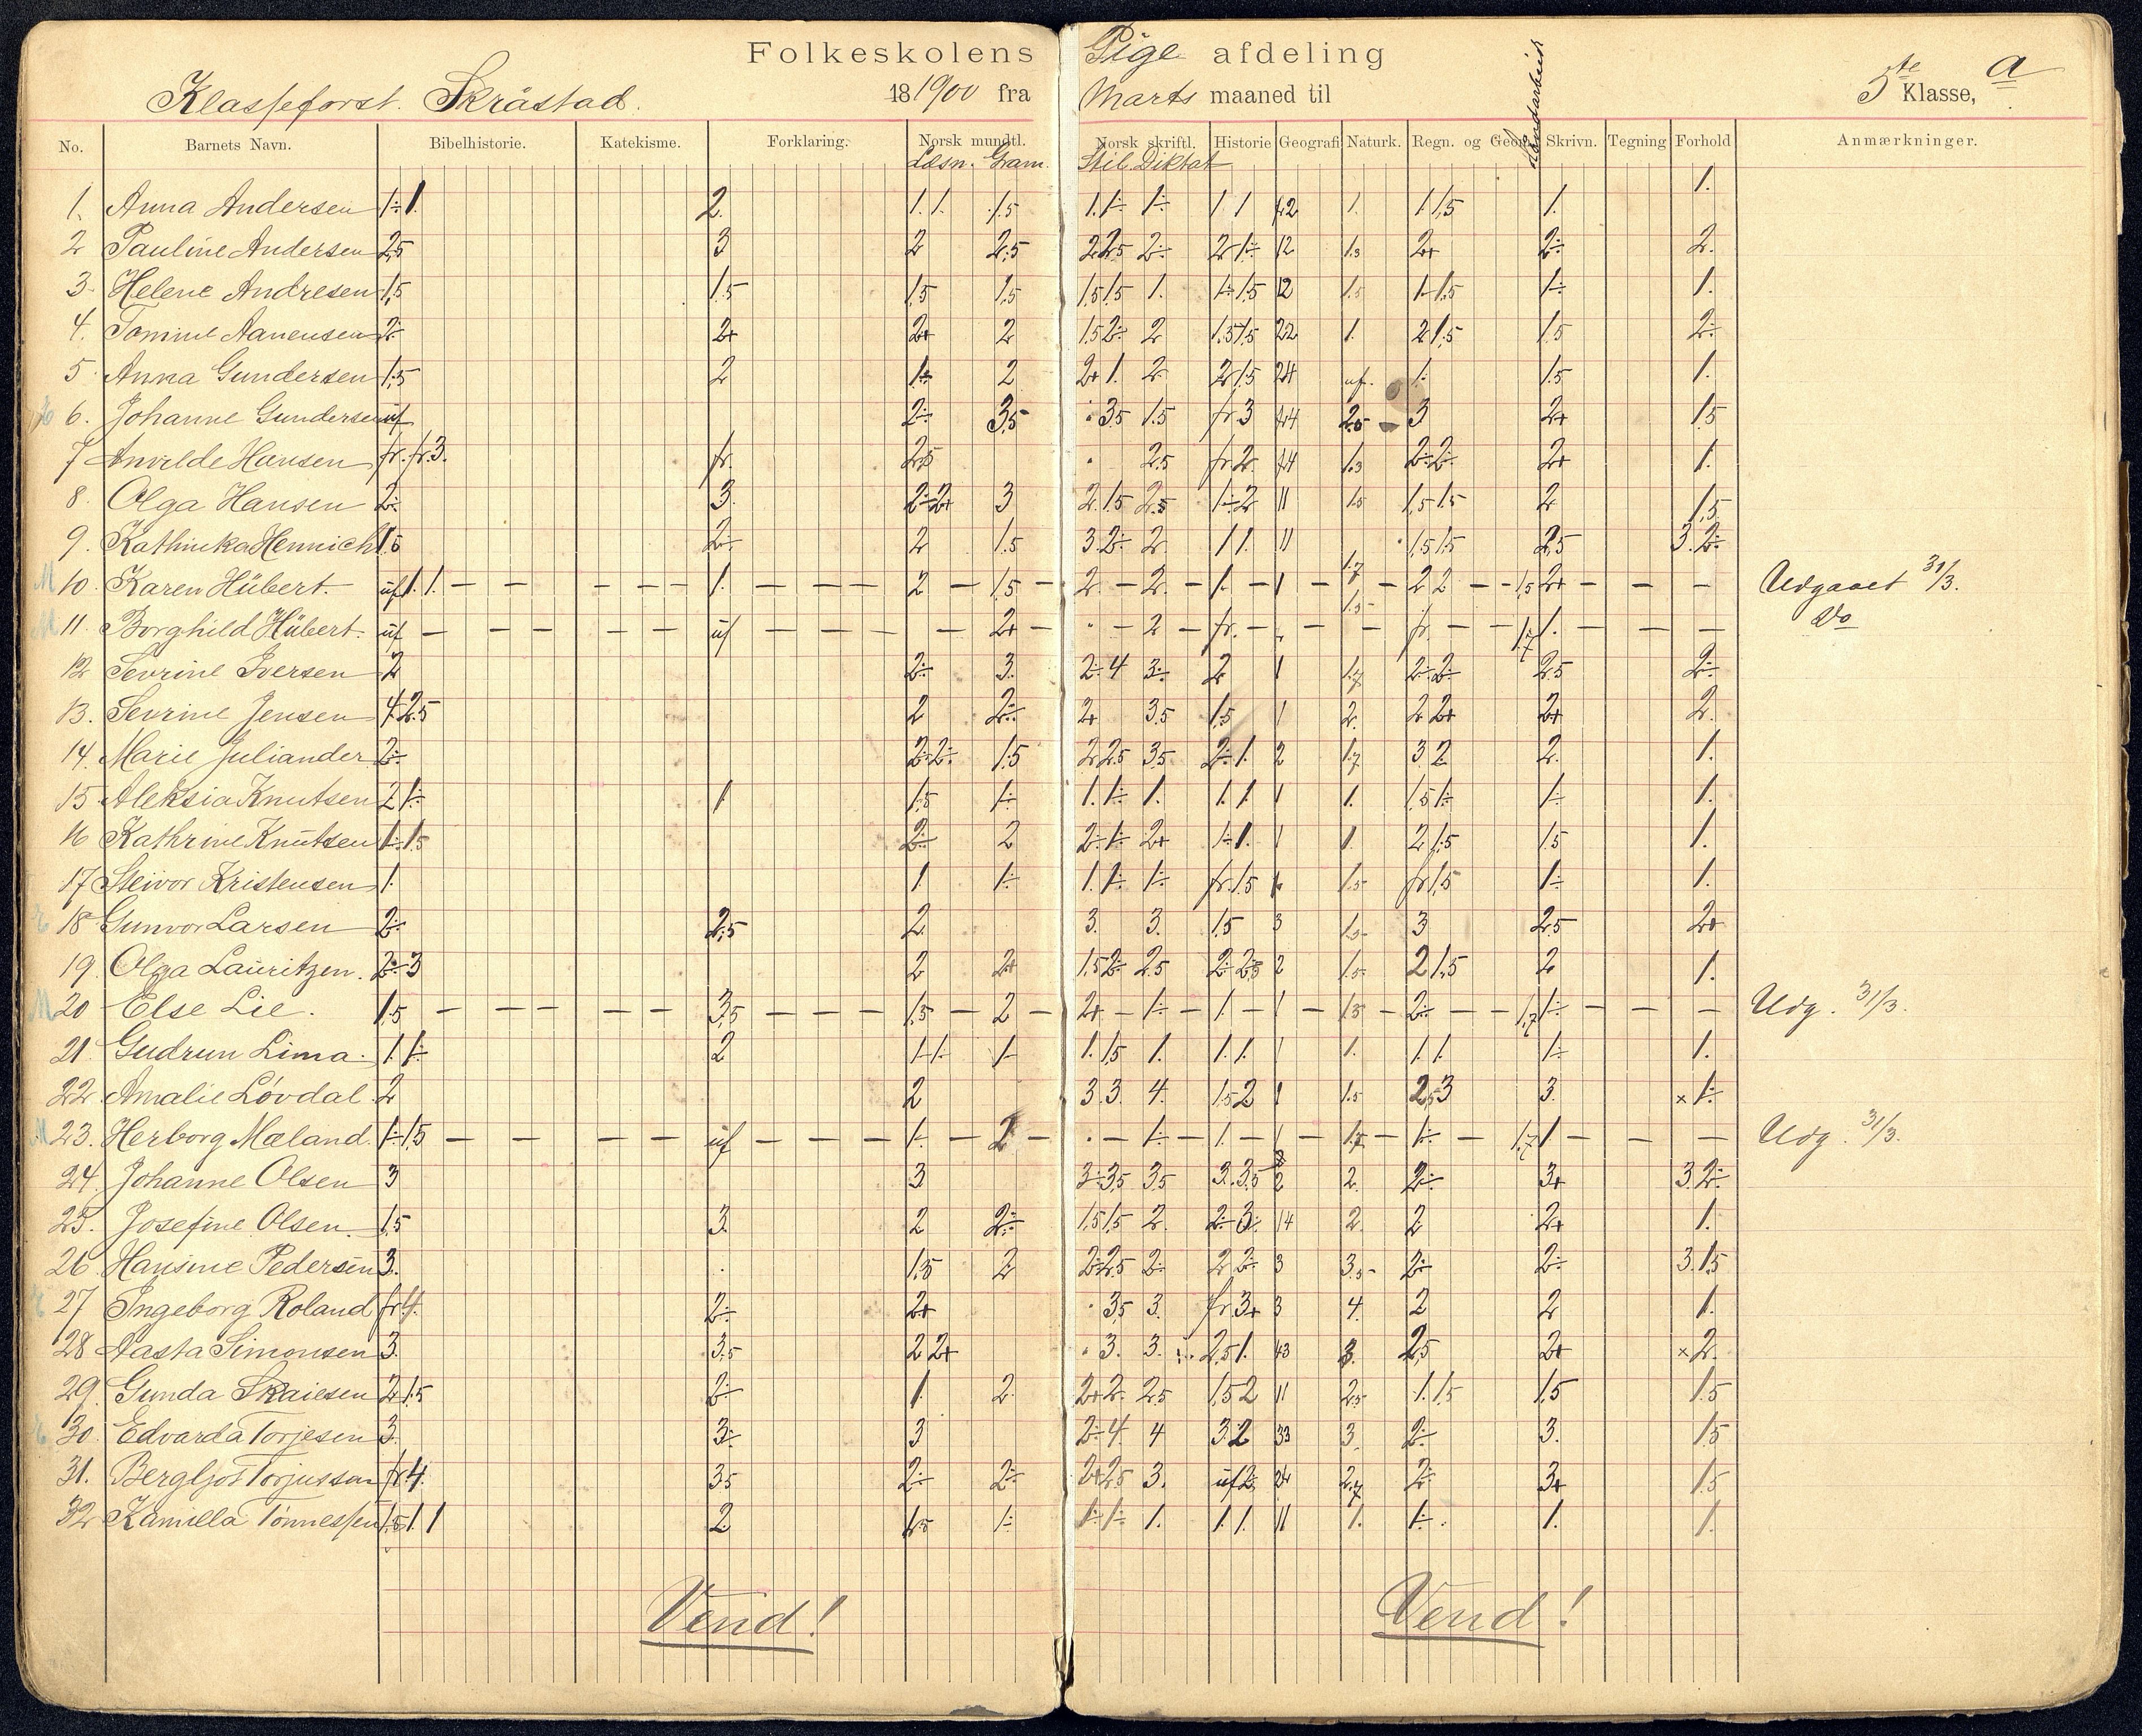 Folkeskolens Pige afdeling
Klasseforst. Skråstad. 18 1900 fra Marts maaned til 5te Klasse, a
No. Barnets Navn. Bibelhistorie. Katekisme. Forklaring. Norsk mundtl. Norsk skriftl. Historie Geografi Naturk. Regn. og Geom. Haandarbeid Skrivn. Tegning Forhold Anmærkninger.
Læsn. Gram. Stil Diktat
1. Anna Andersen 1÷ 1. 2. 1. 1. 1.5 1. 1÷ 1÷ 1 1 1 2 1. 1 1,5 1. 1.
2 Pauline Andersen 2,5 3 2 2,5 2 2.5 2÷ 2 1÷ 1 2 1.3 2+ 2÷ 2.
3. Helene Andresen 1,5 1.5 1,5 1,5 1,5 1,5 1. 1÷ 1,5 1 2 1.5 1÷ 1,5 1÷ 1.
4. Tomine Aanensen 2÷ 2+ 2+ 2 1.5 2÷ 2 1.5 1,5 2 2 1. 2 1,5 1.5 2÷
5 Anna Gundersen 1,5 2 1÷ 2 2+ 1. 2 2 1.5 2 4 uf. 1. 1.5 1.
6. Johanne Gundersen uf 2÷ 3,5 3.5 1.5 fr 3 4 4 2.5 3 2+ 1.5
7 Anvilde Hansen fr. fr. 3. fr. 2,5 2.5 fr. 2 4 4 1.3 2÷ 2÷ 2+ 1.
8. Olga Hansen 2÷ 3. 2÷ 2+ 3 2. 1.5 2.5 1÷ 2 1 1 1.5 1,5 1.5 2 1,5
9. Kathinka Hennich 1.5 2÷ 2 1.5 3. 2÷ 2. 1 1. 1 1 1,5 1.5 2,5 3. 2÷
10. Karen Hübert. uf 1. 1. 1. 2 1.5 2. 2. 1. 1 1.7 2 2 1,5 2+ Udgaaet 31/3.
11. Borghild Hübert. uf uf 2+ 2 fr. 1.5 fr. 1.7 1. Do
12 Sevrine Iversen 2 2÷ 3. 2÷ 4 3÷ 2 1 1.7 2÷ 2÷ 2.5 2÷
13. Sevrine Jensen 4 2.5 2 2÷ 2+ 3.5 1.5 1 2. 2 2+ 2+ 2.
14. Marie Juliander 2÷ 2÷ 2÷ 1.5 2 2.5 3.5 2÷ 1. 2 1.7 3 2 2. 1.
15 Aleksia Knutsen 2 1÷ 1 1.5 1÷ 1. 1÷ 1. 1. 1. 1 1. 1,5 1÷ 1÷ 1.
16 Kathrine Knutsen 1÷ 1.5 2÷ 2 2÷ 1÷ 2+ 1÷ 1. 1 1. 2 1,5 1.5 1.
17 Steivor Kristensen 1. 1. 1÷ 1. 1÷ 1÷ fr. 1.5 1. 1.5 fr 1,5 1÷ 1.
18 Gunvor Larsen 2÷ 2,5 2. 3. 3. 1.5 3 1.5 3 2.5 2+
19. Olga Lauritzen. 2÷ 3 2 2+ 1.5 2÷ 2.5 2÷ 2.5 2 1.5 2 1,5 2 1.
20 Else Lie. 1,5 3,5 1,5 2 2+ 1÷ 1. 1 1.5 2÷ 1,7 1÷ Udg. 31/3.
21. Gudrun Lima. 1. 1÷ 2 1 1. 1÷ 1. 1,5 1. 1. 1. 1 1. 1. 1. 1÷ 1.
22. Amalie Lövdal 2 2 3. 3. 4. 1.5 2 1 1.5 2,5 3 3. × 1÷
23. Herborg Mæland. 1÷ 1.5 uf 1. 2 1÷ 1. 1 1.7 1÷ 1.7 1 Udg. 31/3.
24. Johanne Olsen 3 3 3÷ 3,5 3.5 3. 3.5 2 2. 2÷ 3+ 3. 2÷
25. Josefine Olsen. 1.5 3. 2 2÷ 1.5 1.5 2. 2÷ 3÷ 1 4 2. 2 2+ 1.
26. Hansine Pedersen 3. 1.5 2 2÷ 2.5 2÷ 2 2÷ 3 3.5 2÷ 2÷ 3. 1.5
27 Ingeborg Roland fr. 4. 2÷ 2+ 3.5 3. fr. 3+ 3 4. 2 2 1.
28 Aasta Simonsen 3. 3.5 2 2+ 3. 3. 2,5 1. 4 3 3. 2,5 2+ × 2.
29. Gunda Skaiesen 2 1.5 2÷ 1. 2. 2+ 2. 2.5 1,5 2 1 1 2.5 1. 1,5 1,5 1.5
30. Edvarda Torjesen 3. 3÷ 3 2÷ 4. 4 3. 2 3 3 3 2÷ 3. 1.5
31. Bergljot Torjussen fr. 4. 3.5 2÷ 2÷ 2+ 2.5 3. uf 2 2 4 2.7 2÷ 3+ 1.5
32 Kamilla Tönnessen 1.5 1. 1 2. 1.5 1÷ 1÷ 1÷ 1. 1. 1. 1 1 1. 1÷ 1. 1.
Vend! Vend!